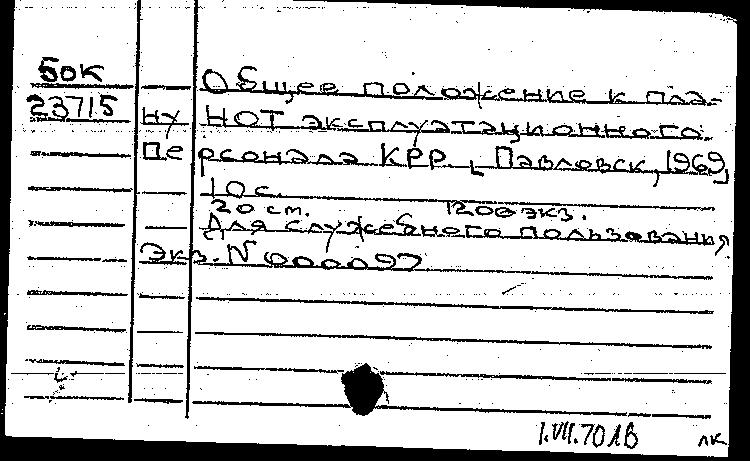 БОК
23715
Общее положение к пла-
ну НОТ эксплуатационного
персонала КРР [Павловск, 1969]
10 с.
20 см. 1200 экз.
Для служебного пользования
Экз. N 000097
1.VII.70 1В лк